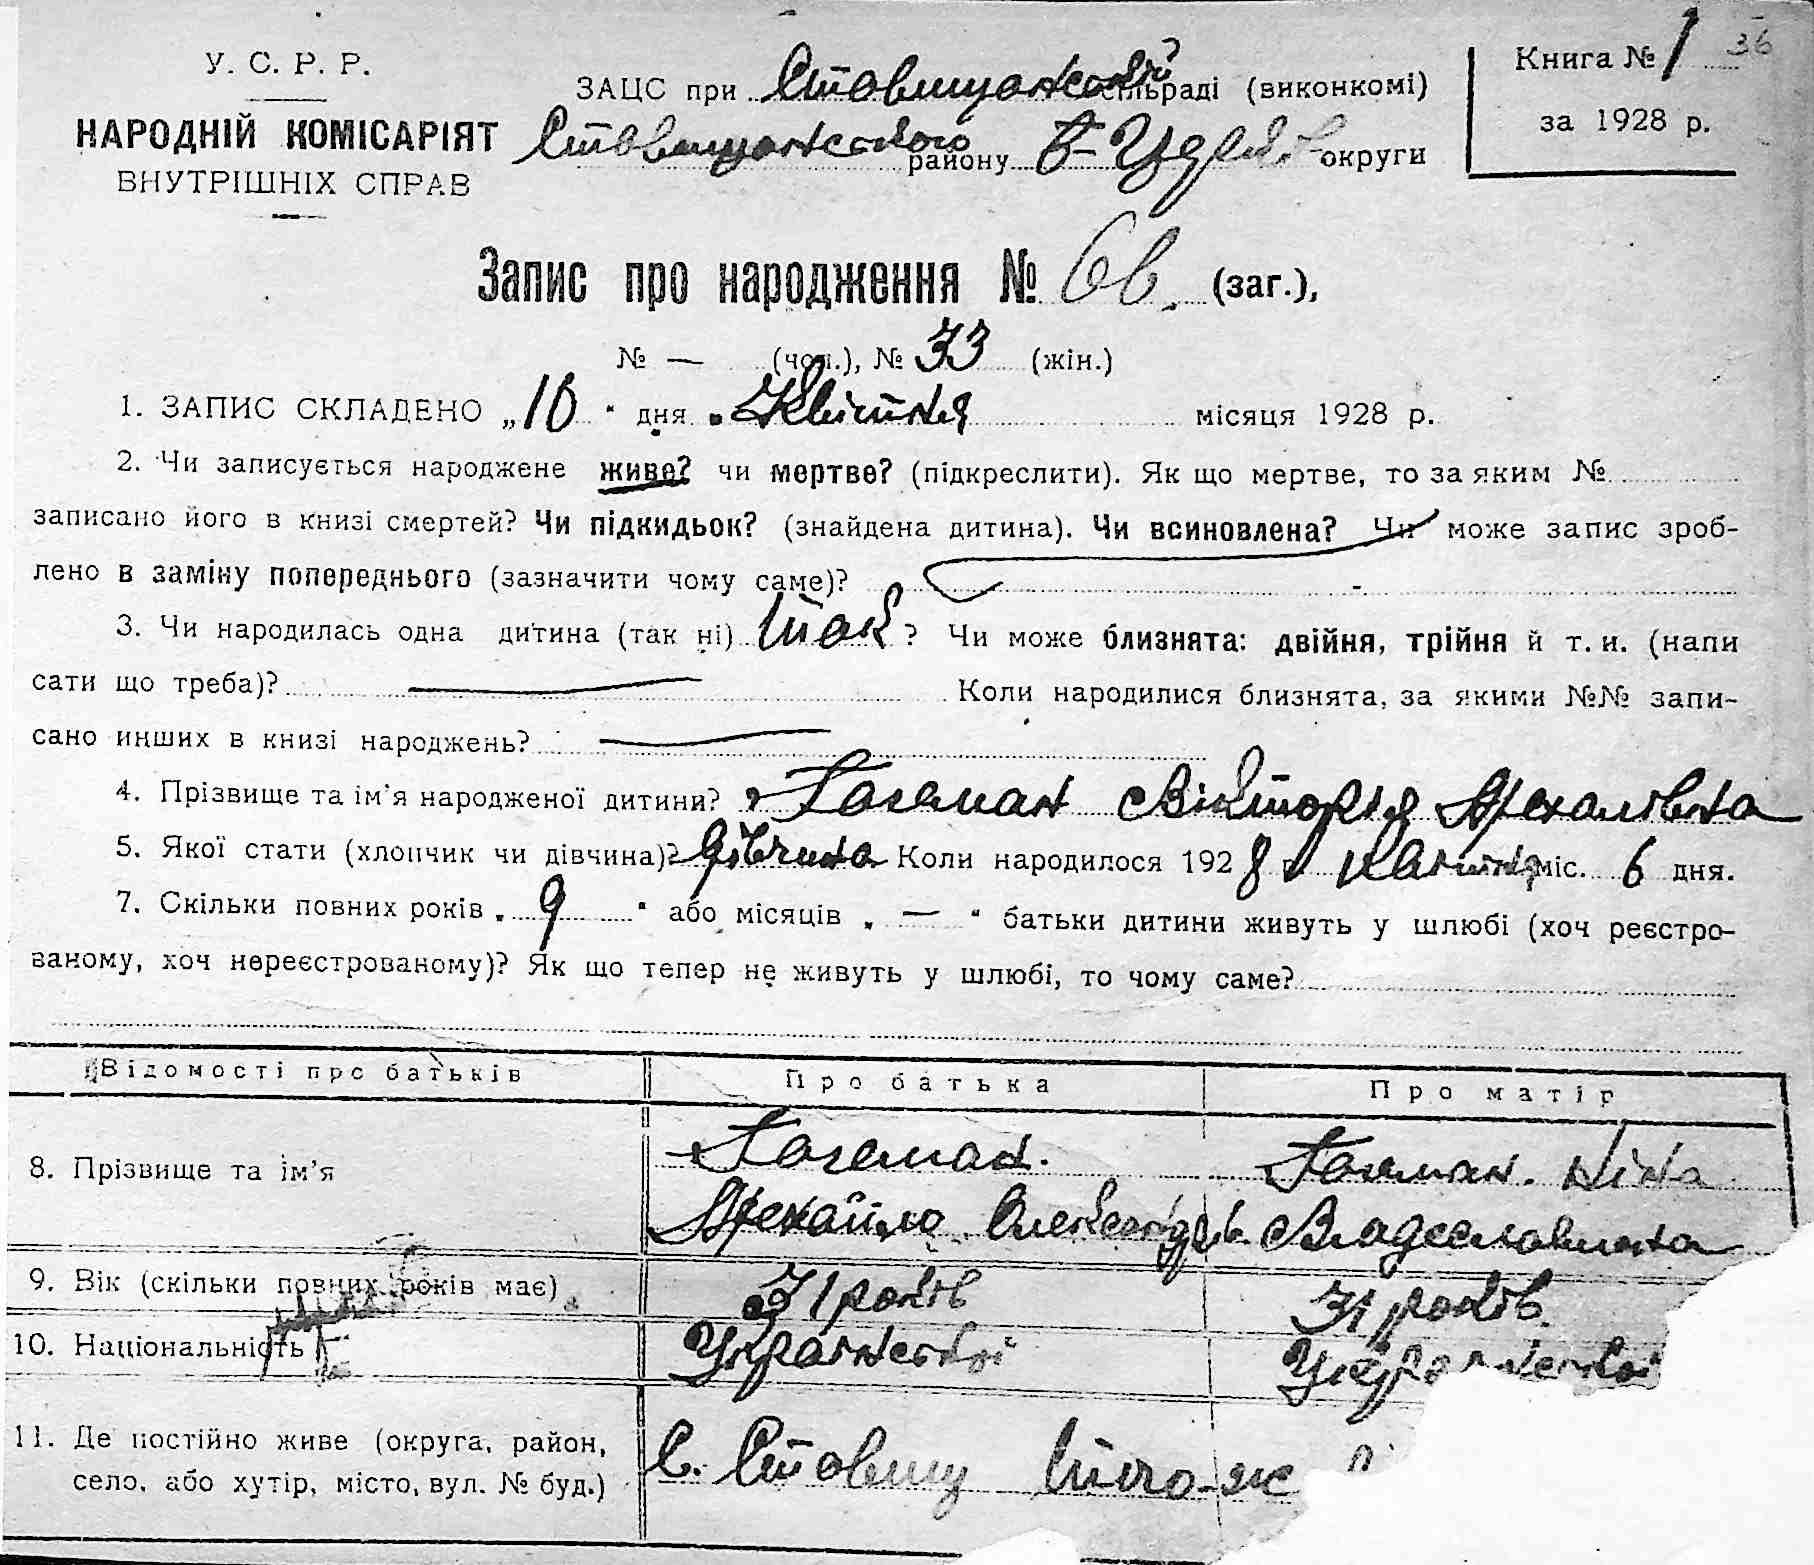 У. С. Р. Р.
НАРОДНІЙ КОМІСАРІЯТ
ВНУТРІШНІХ СПРАВ
ЗАЦС при Ставищанській сільраді (виконкомі)
Ставищанського району Б-Церків округи
Книга № 1 36
за 1928 р.
Запис про народження № 66. (заг.),
№ — (чол.), № 33 (жін.)
1. ЗАПИС СКЛАДЕНО „10“ дня Квітня місяця 1928 р.
2. Чи записується народжене живе? чи мертве? (підкреслити). Як що мертве, то за яким №
записано його в книзі смертей? Чи підкидьок? (знайдена дитина). Чи всиновлена? Чи може запис зроб-
лено в заміну попереднього (зазначити чому саме)?
3. Чи народилась одна дитина (так ні) так? Чи може близнята: двійня, трійня й т. и. (напи
сати що треба)? — Коли народилися близнята, за якими №№ запи-
сано инших в книзі народжень? —
4. Прізвище та ім'я народженої дитини? Гогеман Вікторія Михалівна
5. Якої стати (хлопчик чи дівчина)? Дівчина Коли народилося 1928 р квітня міс. 6 дня.
7. Скільки повних років „9“ або місяців „—“ батьки дитини живуть у шлюбі (хоч реєстро-
ваному, хоч нереєстрованому)? Як що тепер не живуть у шлюбі, то чому саме?
Відомості про батьків Про батька Про матір
8. Прізвище та ім'я Гогеман. Гогеман. Ніна
Михайло Олександрів. Владиславівна
9. Вік (скільки повних років має) 31 років 31 років.
10. Національність Українські Українські
11. Де постійно живе (округа, район, село, або хутір, місто, вул. № буд.) С. Ставищ